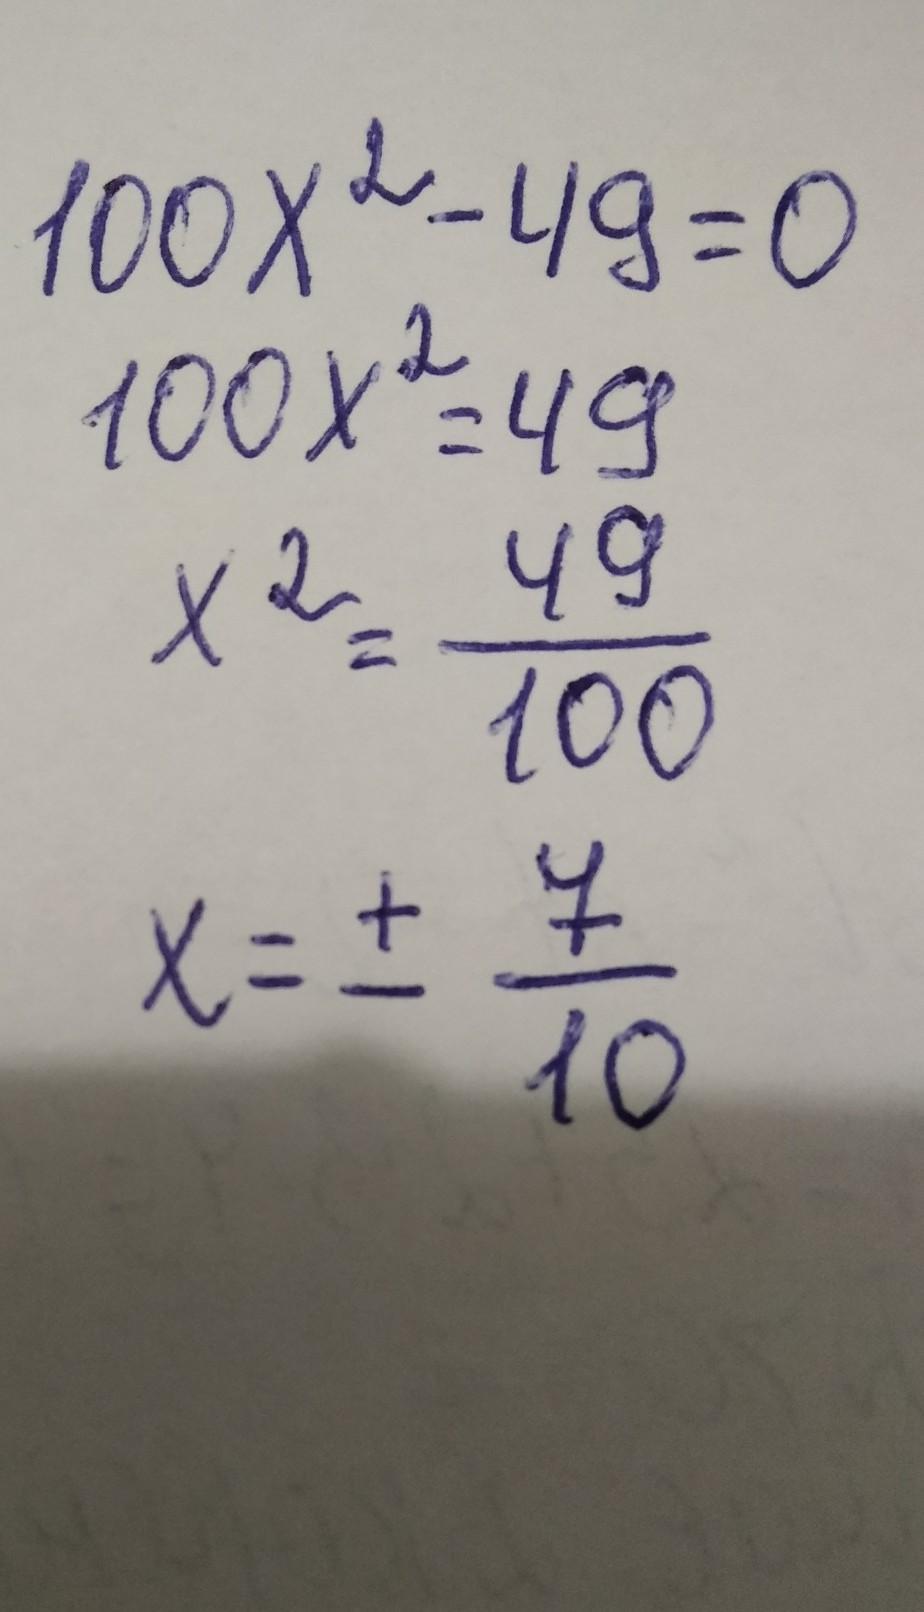 100x² - 49 = 0
100x² = 49
x² = 49/100
x = ± 7/10